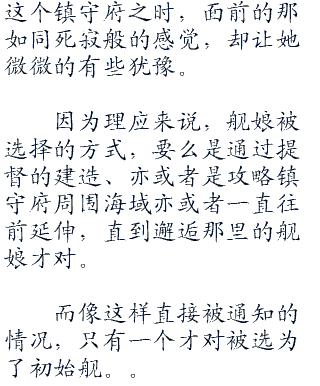 这个镇守府之时，面前的那
如同死寂般的感觉，却让她
微微的有些犹豫。
因为理应来说，舰娘被
选择的方式，要么是通过提
督的建造、亦或者是攻略镇
守府周围海域亦或者一直往
前延伸，直到邂逅那里的舰
娘才对。
而像这样直接被通知的
情况，只有一个才对被选为
了初始舰。。